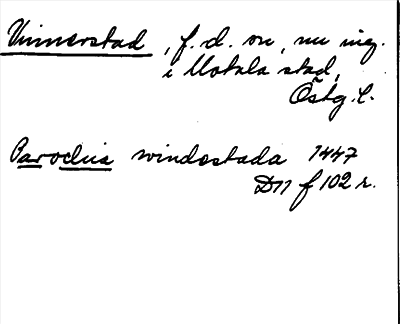 Vinnerstad, f.d. sn, nu ing.
i Motala stad,
Östg. l.
Parochia windestada 1447
D11 f 102 r.